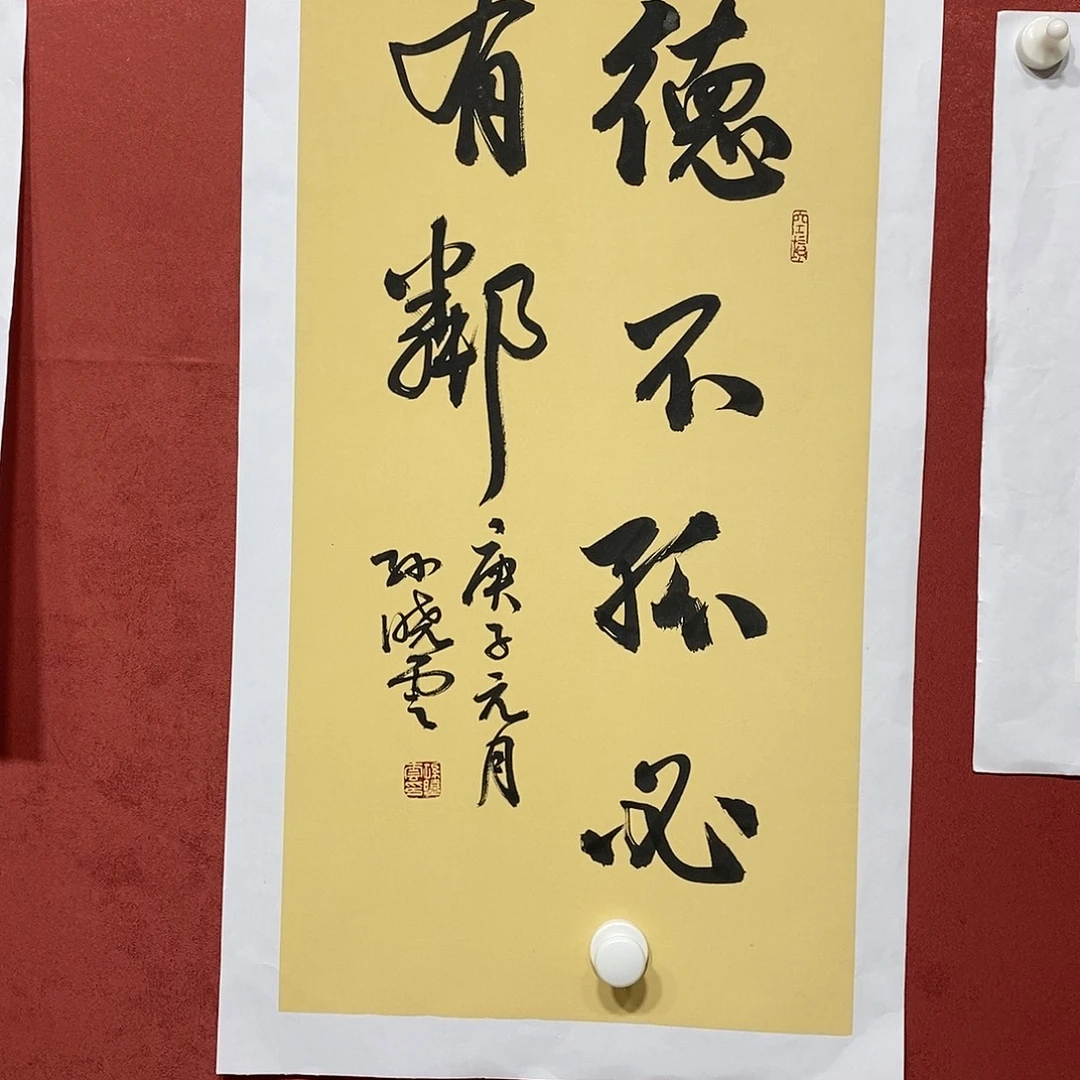 德不孤必
有鄰
庚子元月
孙晓雲